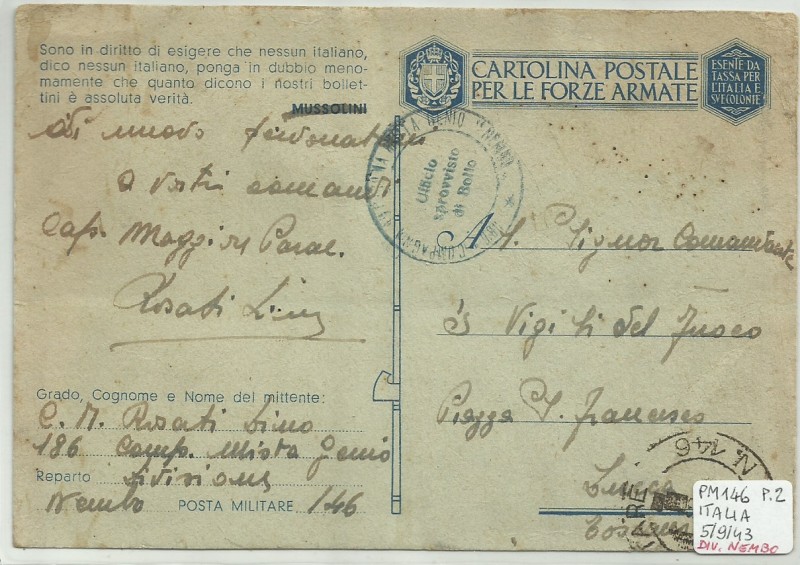 Sono in diritto di esigere che nessun italiano,
dico nessun italiano, ponga in dubbio meno-
mamente che quanto dicono i nostri bollet-
tini è assoluta verità.
MUSSOLINI
CARTOLINA POSTALE
PER LE FORZE ARMATE
ESENTE DA
TASSA PER
L'ITALIA E
SUE COLONIE
Ufficio
sprovvisto
di Bollo
Di nuovo
a vostri comandi
Cap. Magg. Parac.
Rosati Lino
Al Signor Comandante
Vigili del Fuoco
Piazza S. Francesco
Lucca
Grado, Cognome e Nome del mittente:
C. M. Rosati Lino
186 Comp. Mista Genio
Reparto Divisione
Nembo POSTA MILITARE 146
N. 146
PM146 P.2
ITALIA
5/9/43
DIV. NEMBO